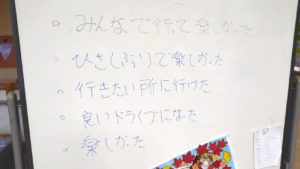 。みんなで行って楽しかった
。ひさしぶりで楽しかった
。行きたい所に行けた
。良いドライブになった
。楽しかった